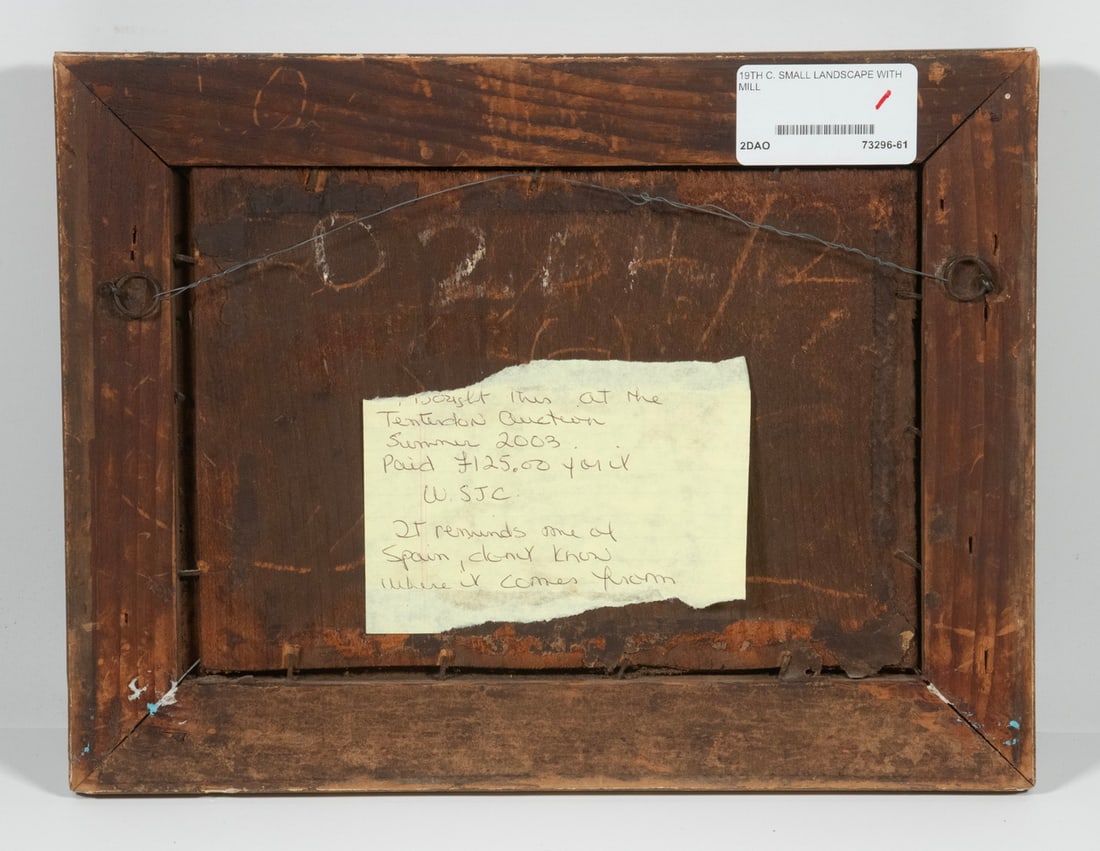 19TH C. SMALL LANDSCAPE WITH
MILL
2DAO 73296-61
I Bought This at the
Tenterdon Auction
Summer 2003.
Paid £125.00 for it
W.SJC.
It reminds me of
Spain, dont know
where it comes from